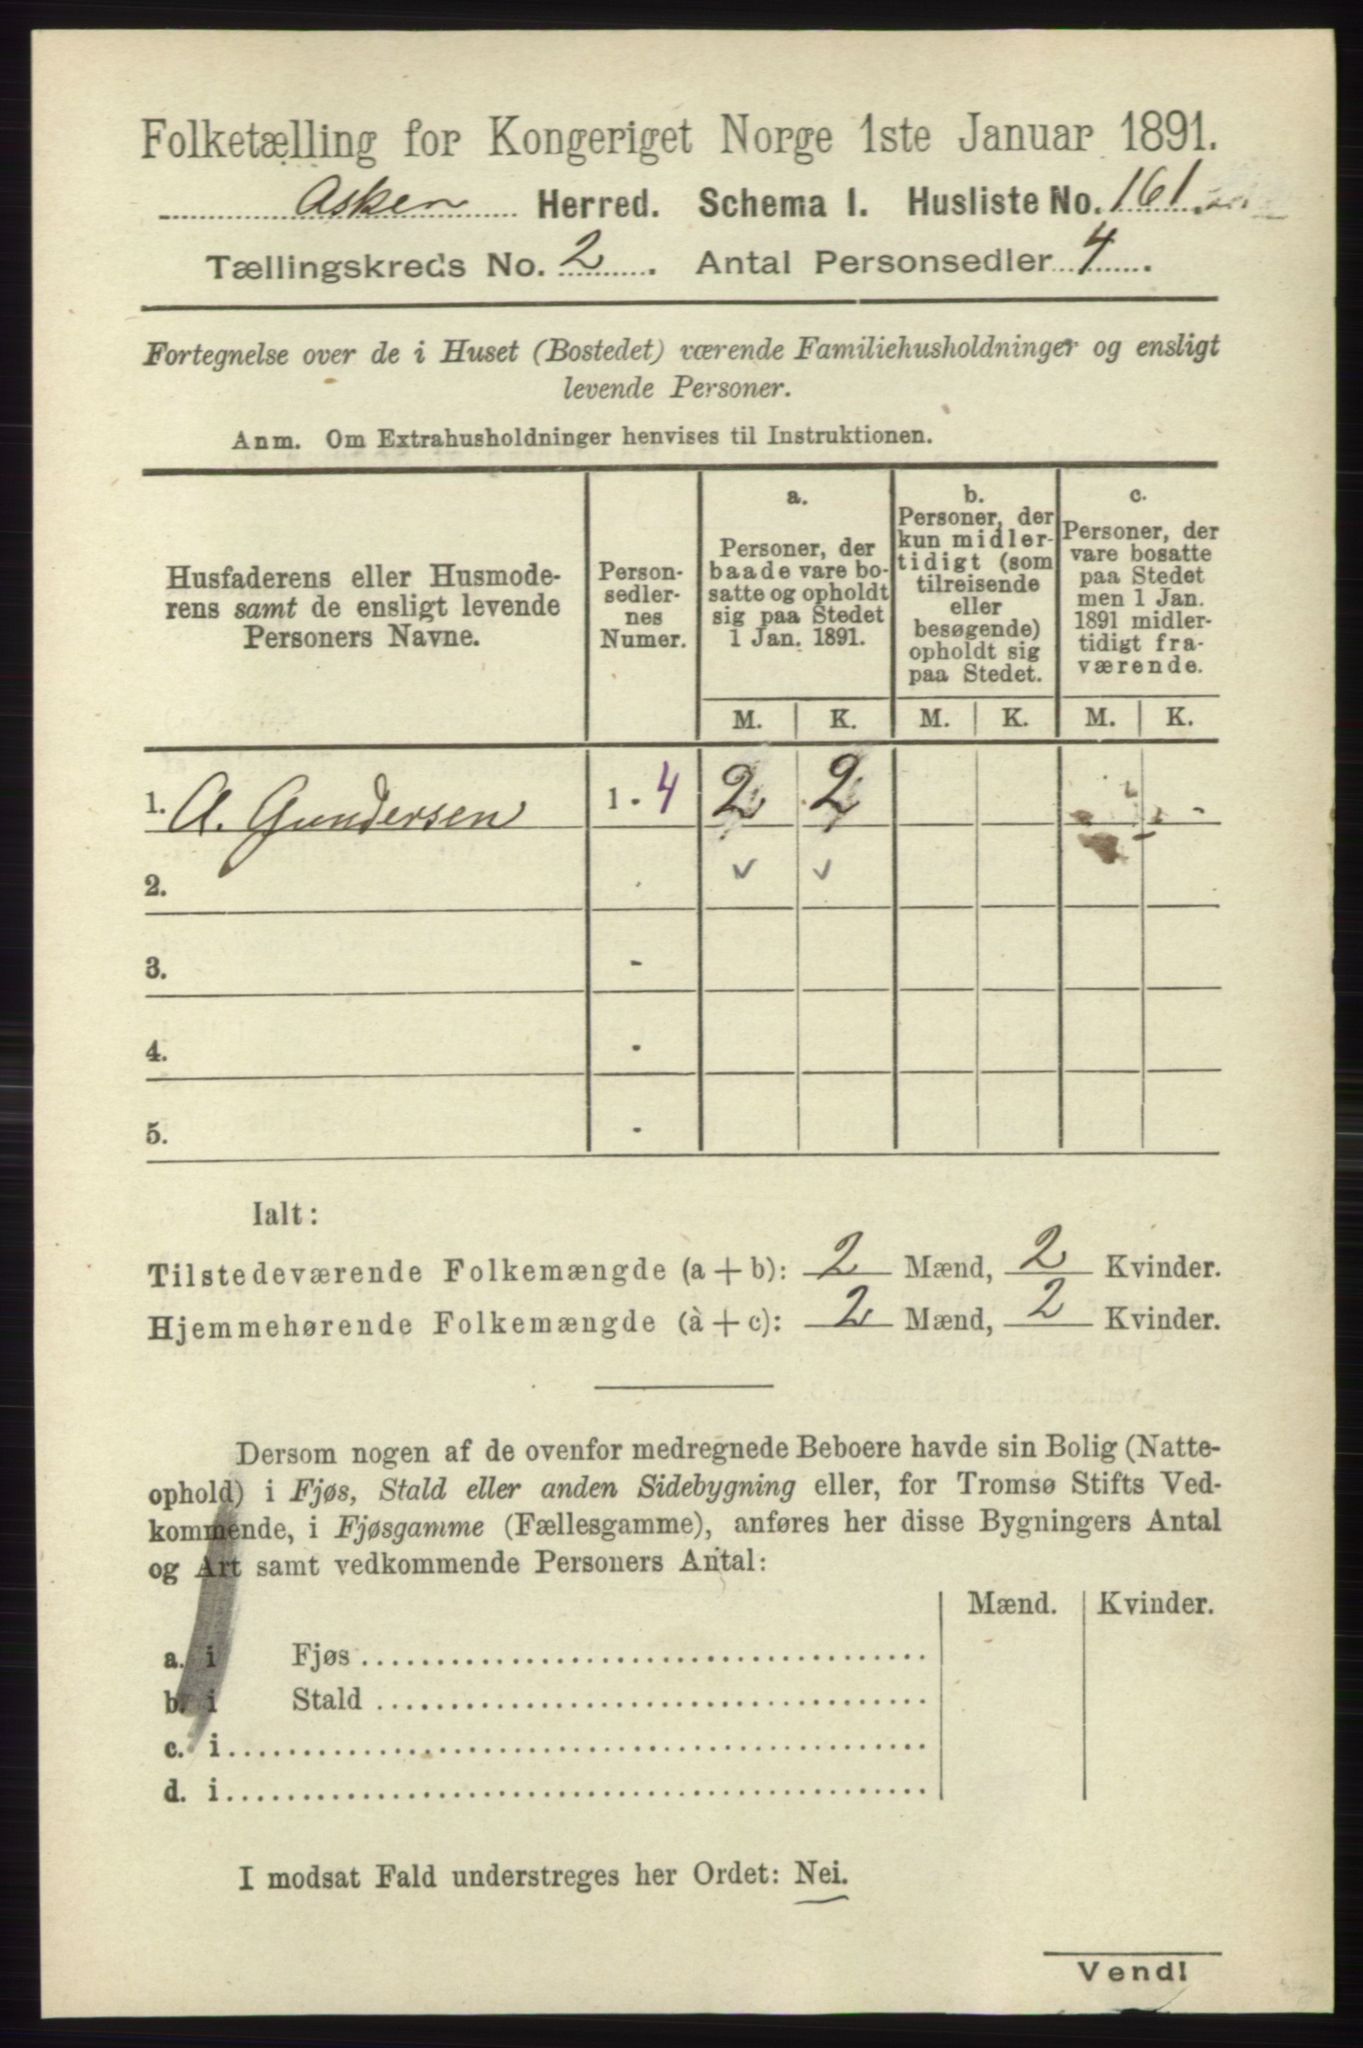 Folketælling for Kongeriget Norge 1ste Januar 1891.
Asker Herred. Schema I. Husliste No. 161.
Tællingskreds No. 2. Antal Personsedler 4.
Fortegnelse over de i Huset (Bostedet) værende Familiehusholdninger og ensligt
levende Personer.
Anm. Om Extrahusholdninger henvises til Instruktionen.
Husfaderens eller Husmode-
rens samt de ensligt levende
Personers Navne.
Person-
sedler-
nes
Numer.
a.
Personer, der
baade vare bo-
satte og opholdt
sig paa Stedet
1 Jan. 1891.
b.
Personer, der
kun midler-
tidigt (som
tilreisende
eller
besøgende)
opholdt sig
paa Stedet.
c.
Personer, der
vare bosatte
paa Stedet
men 1 Jan.
1891 midler-
tidigt fra-
værende.
M. K. M. K. M. K.
1. A. Gundersen 1 - 4 2 2
2.
3. -
4. -
5. -
Ialt:
Tilstedeværende Folkemængde (a + b): 2 Mænd, 2 Kvinder.
Hjemmehørende Folkemængde (à + c): 2 Mænd, 2 Kvinder.
Dersom nogen af de ovenfor medregnede Beboere havde sin Bolig (Natte-
ophold) i Fjøs, Stald eller anden Sidebygning eller, for Tromsø Stifts Ved-
kommende, i Fjøsgamme (Fællesgamme), anføres her disse Bygningers Antal
og Art samt vedkommende Personers Antal:
Mænd. Kvinder.
a. i Fjøs
b. i Stald
c. i
d. i
I modsat Fald understreges her Ordet: Nei.
Vend!